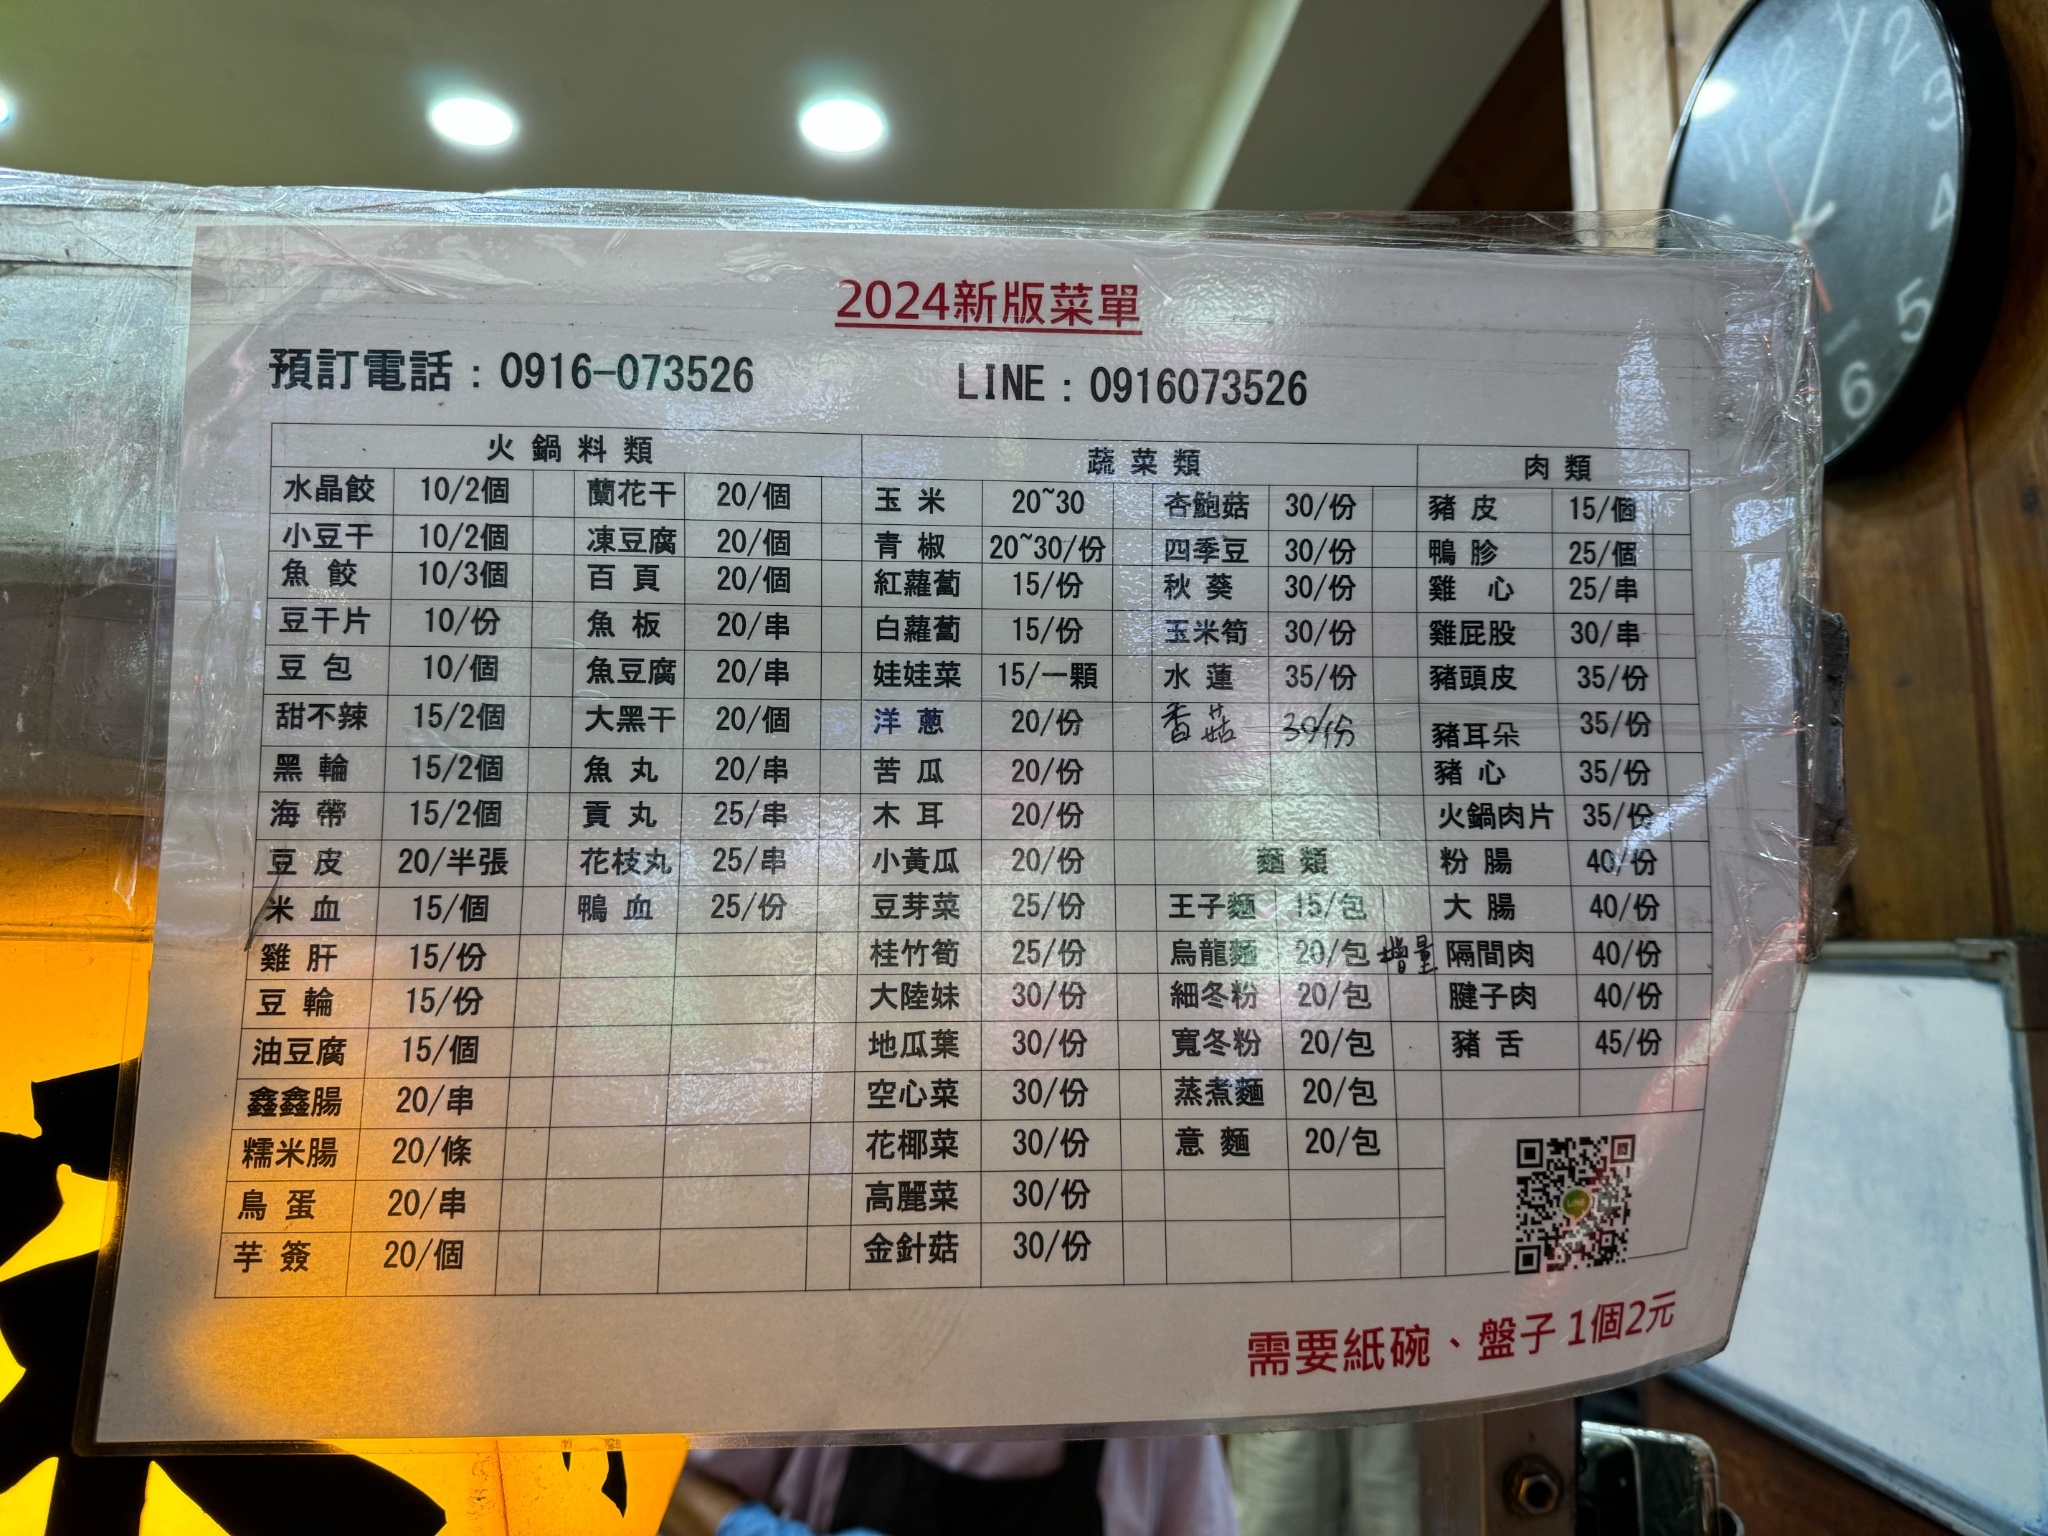 2024新版菜單
預訂電話：0916-073526 LINE：0916073526
火鍋料類 蔬菜類 肉類
水晶餃 10/2個 蘭花干 20/個 玉米 20~30 杏鮑菇 30/份 豬皮 15/個
小豆干 10/2個 凍豆腐 20/個 青椒 20~30/份 四季豆 30/份 鴨胗 25/個
魚餃 10/3個 百頁 20/個 紅蘿蔔 15/份 秋葵 30/份 雞心 25/串
豆干片 10/份 魚板 20/串 白蘿蔔 15/份 玉米筍 30/份 雞屁股 30/串
豆包 10/個 魚豆腐 20/串 娃娃菜 15/一顆 水蓮 35/份 豬頭皮 35/份
甜不辣 15/2個 大黑干 20/個 洋蔥 20/份 香菇 30/份 豬耳朵 35/份
黑輪 15/2個 魚丸 20/串 苦瓜 20/份 豬心 35/份
海帶 15/2個 貢丸 25/串 木耳 20/份 火鍋肉片 35/份
豆皮 20/半張 花枝丸 25/串 小黃瓜 20/份 麵類 粉腸 40/份
米血 15/個 鴨血 25/份 豆芽菜 25/份 王子麵 15/包 大腸 40/份
雞肝 15/份 桂竹筍 25/份 烏龍麵 20/包 增量 隔間肉 40/份
豆輪 15/份 大陸妹 30/份 細冬粉 20/包 腱子肉 40/份
油豆腐 15/個 地瓜葉 30/份 寬冬粉 20/包 豬舌 45/份
鑫鑫腸 20/串 空心菜 30/份 蒸煮麵 20/包
糯米腸 20/條 花椰菜 30/份 意麵 20/包
鳥蛋 20/串 高麗菜 30/份
芋簽 20/個 金針菇 30/份
需要紙碗、盤子1個2元
12
1
2
3
4
5
6
11